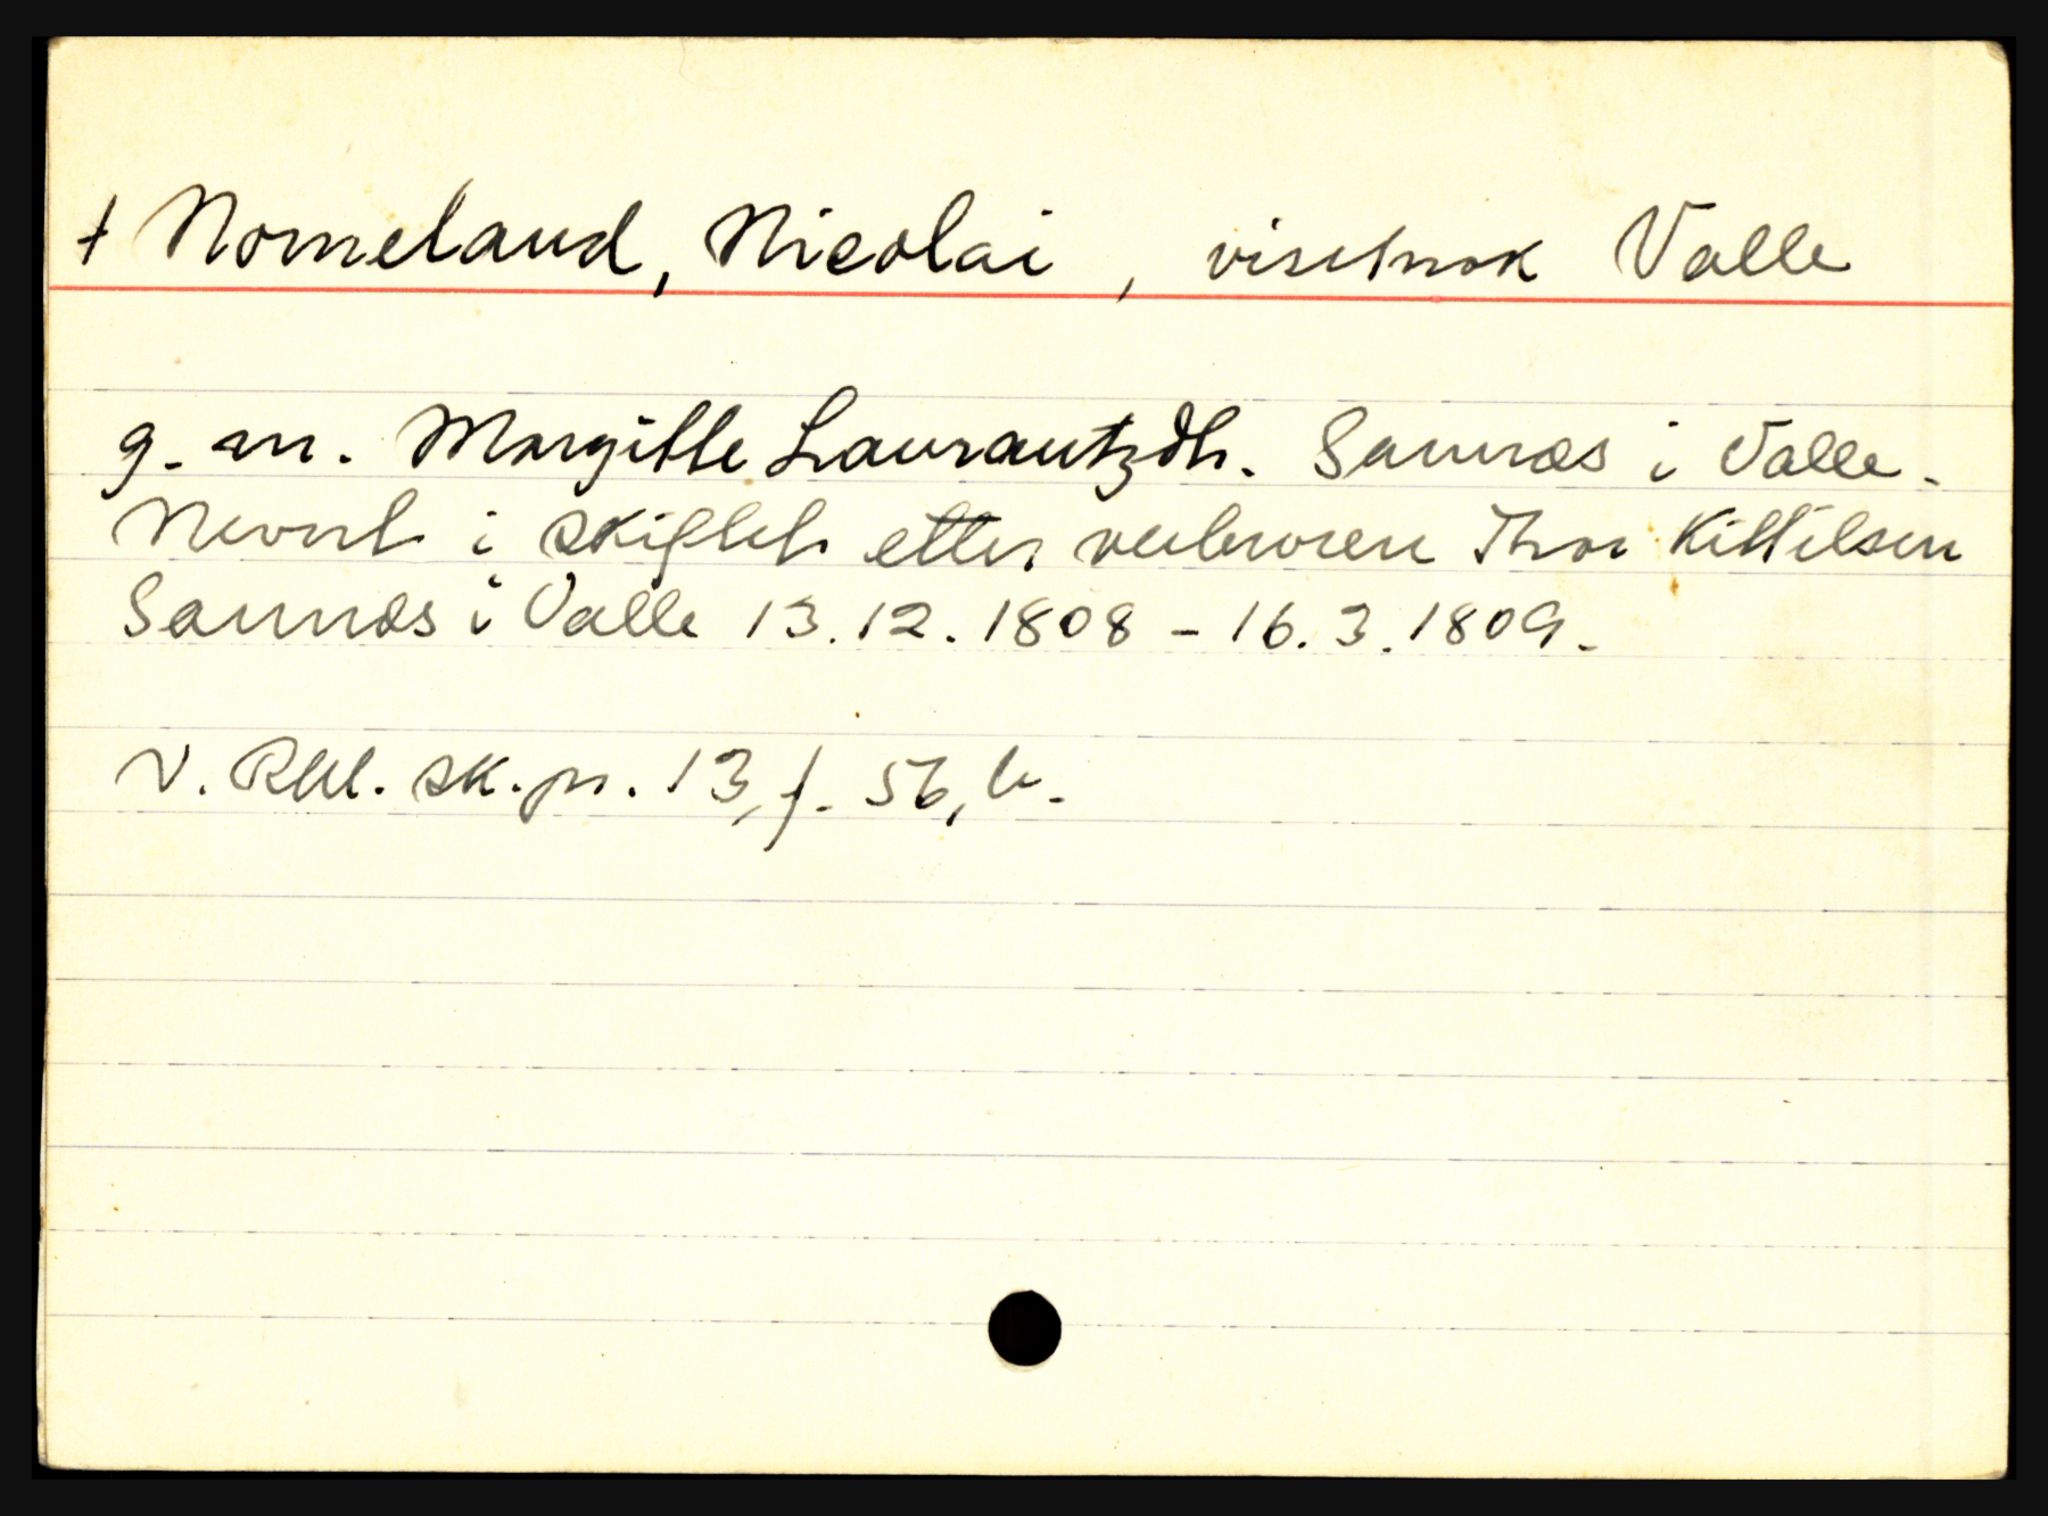 + Nomeland, Nicolai, visstnok Valle
g. m. Margitte Laurantzdtr. Sannes i Valle.
Nevnt i skiftet etter verbroren Thor Kittilsen
Sannes i Valle 13.12.1808 - 16.3.1809.
V. Rbl. sk.pr. 13, f. 56, b.